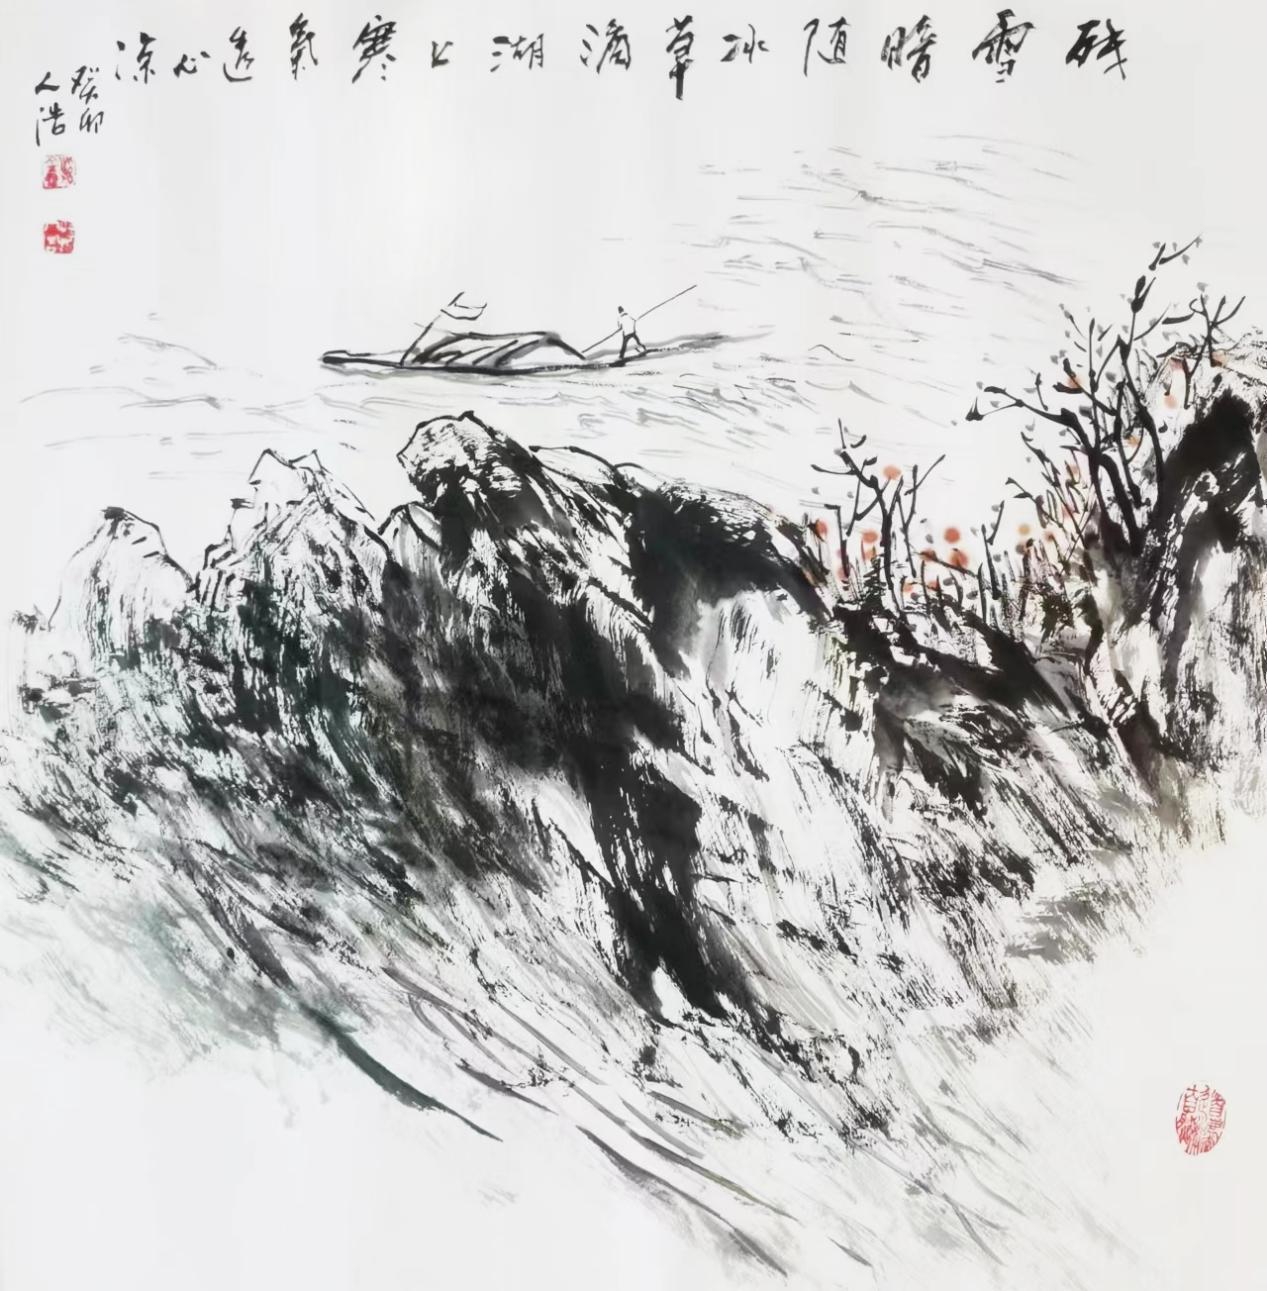 残雪暗随冰草滴湖上寒氣透心凉
癸卯
人浩